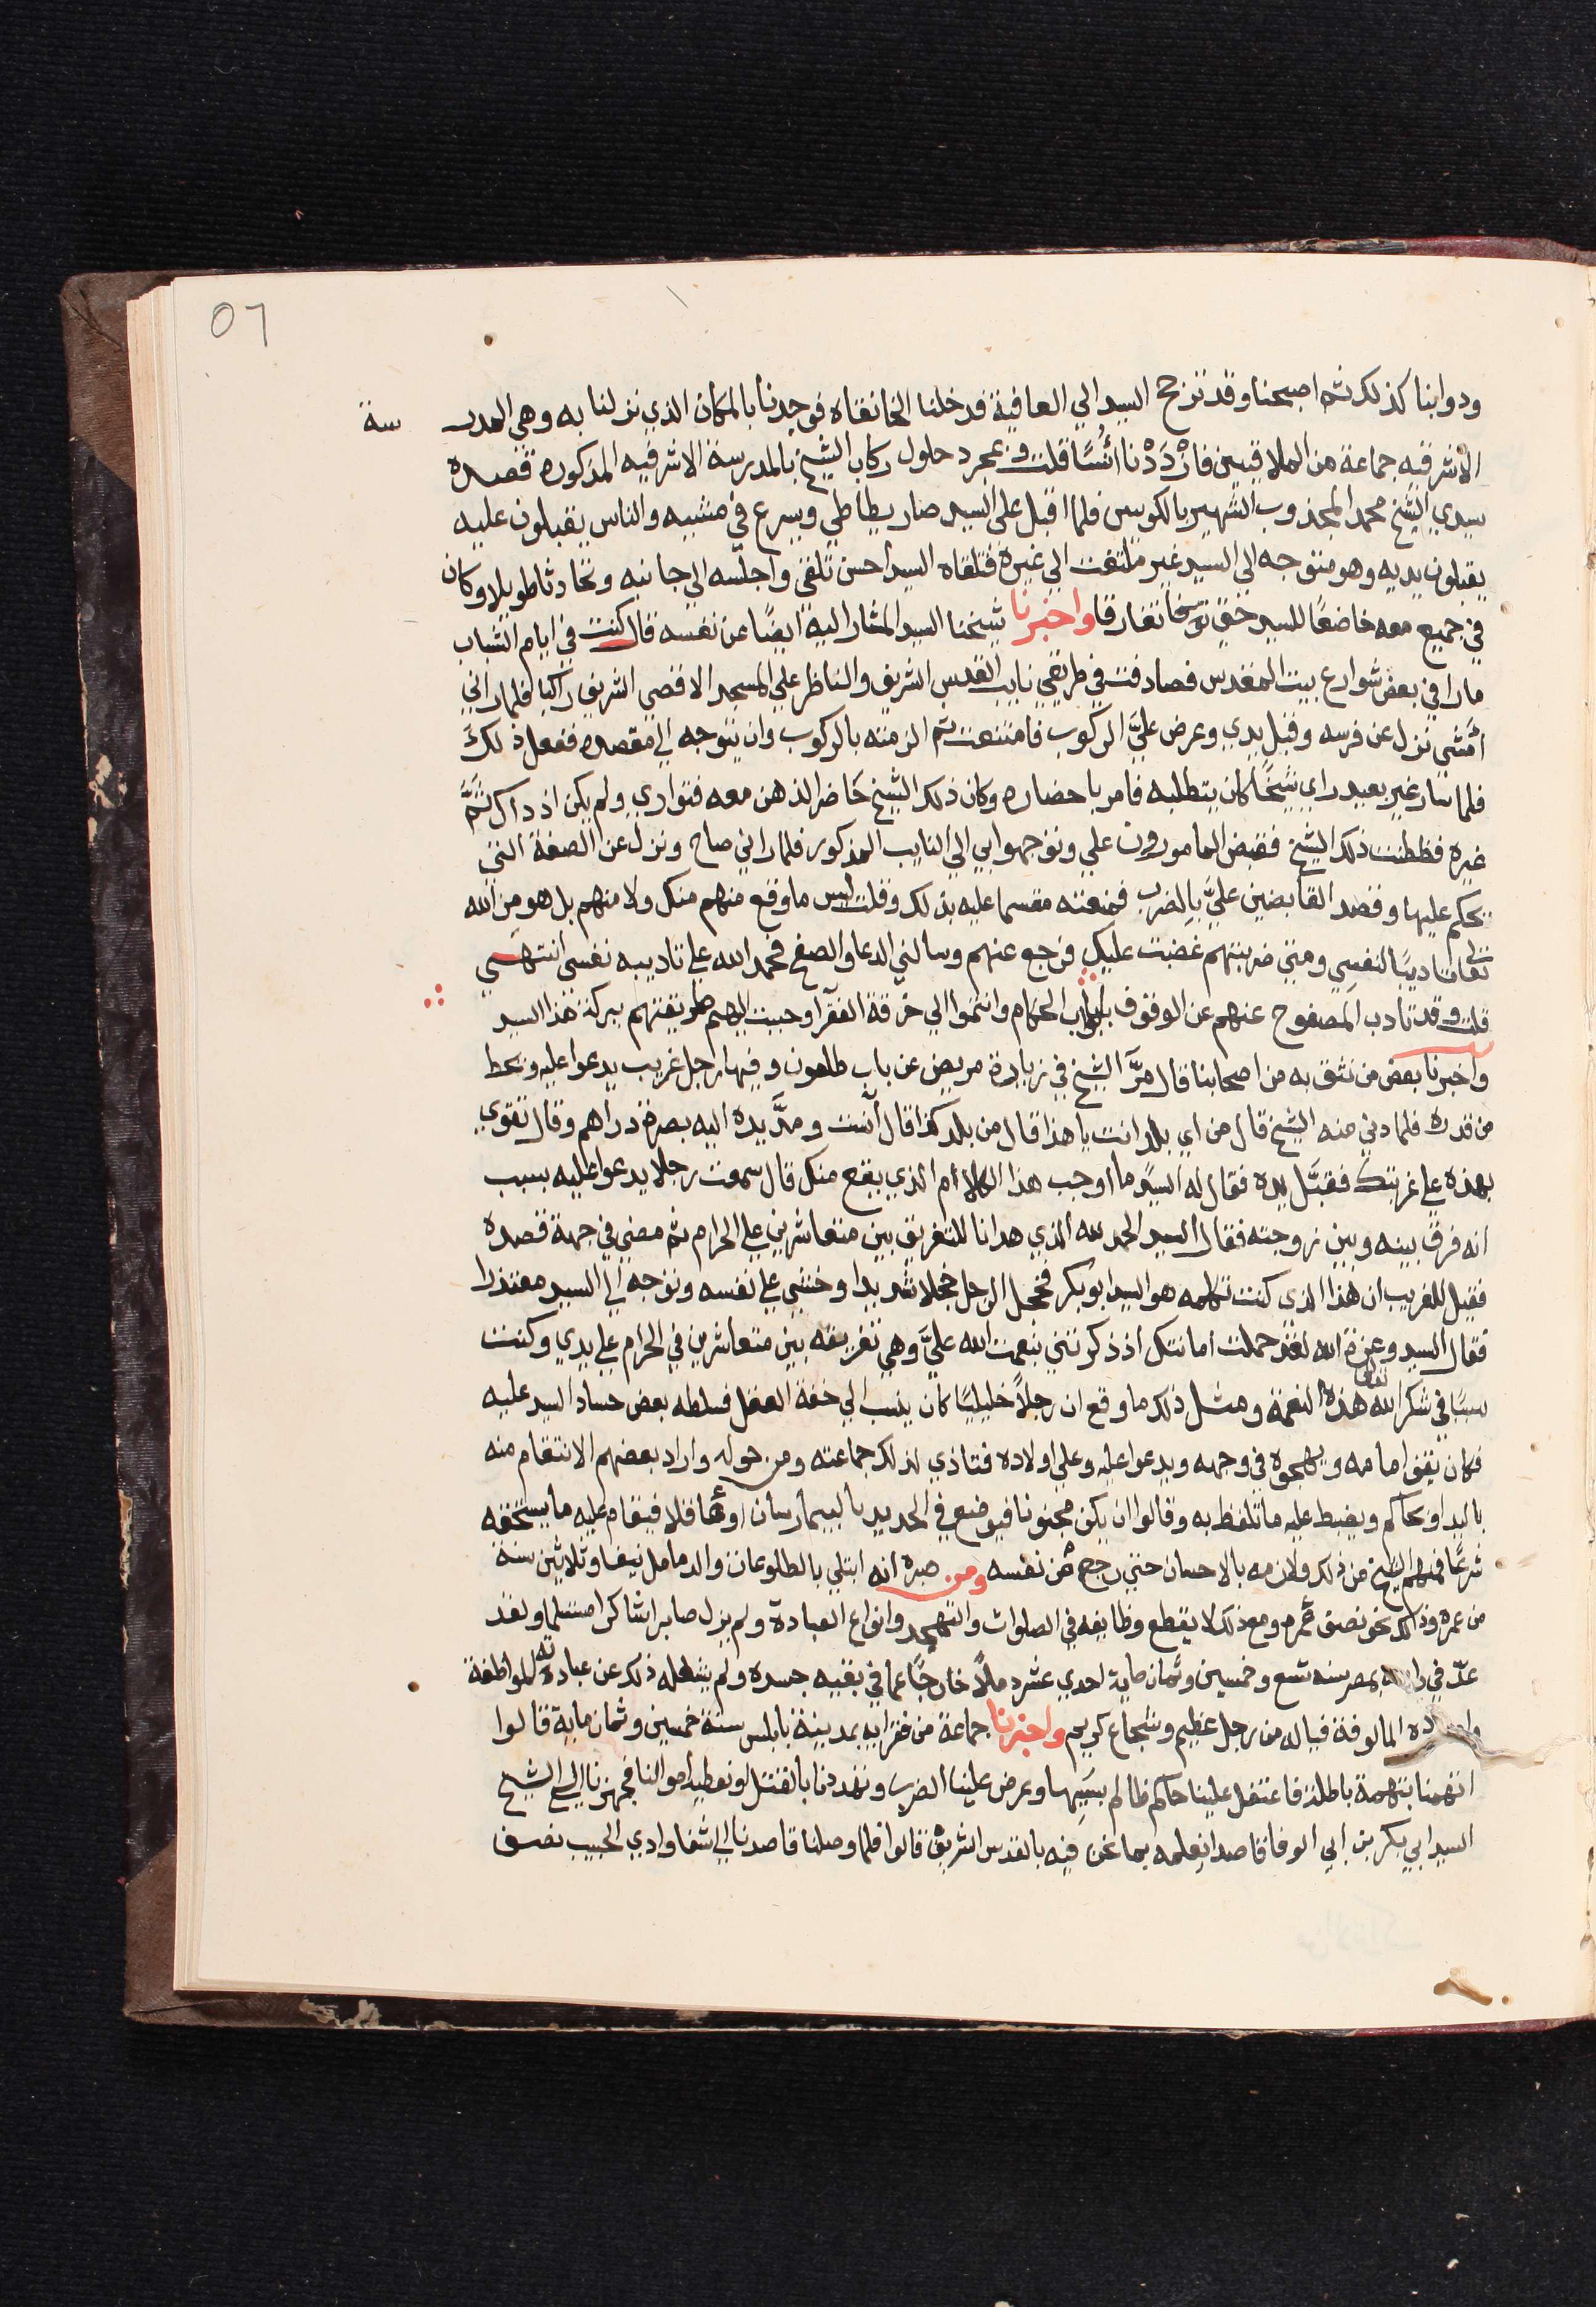 ٥٦
ودوابنا كذلك ثم اصبحنا وقد تزحزح السيد الي العافية فدخلنا الخانقاه فوجدنا بالمكان الذي نزلنا به وهي المدرسة
الاشرفيه جماعة من الملاقيين فازْدَدْنا انُسًا قلت وبمجرد حلول ركاب الشيخ بالمدرسة الاشرفيه المذكوره قصده
سيدي الشيخ محمد المجذوب الشهير بالكويس فلما اقبل على السيد صار يطاطي ويسرع في مشيه والناس يقبلون عليه
يقبلون يديه وهو متوجه الي السيد غير ملتفت الي غيره فتلقاه السيد احسن تلقي واجلسه الي جانبه وتحادثا طويلا وكان
في جميع معه خاضعًا للسيد حتي تفارقا واخبرنا شيخنا السيد المشار اليه ايضًا عن نفسه قال كنت في ايام الشباب
مارا في بعض شوارع بيت المقدس فصادفت في طريقي نايب القدس الشريف والناظر علي المسجد الاقصي الشريف راكبا فلما راني
أمشي نزل عن فرسه وقبل يدي وعرض عليَّ الركوب فامتنعت ثم الزمته بالركوب وان يتوجه الي مقصده ففعل ذلكَ
فلما سار غير بعيد راي شيخًا كان يتطلبه فامر باحضاره وكان ذلك الشيخ حاضر الذهن معه فتواري ولم يكن اذ داك ثمَّ
غيره فظننت ذلك الشيخ فقبض المامورون علي وتوجهوا بي الي النايب المذكور فلما راني صاح ونزل عن الصفة التي
يحكم عليها وقصد القابضين عليَّ بالضرب فمنعته مقسما عليه بذلك وقلت ليس ما وقع منهم منك ولا منهم بل هو من الله
تعالى تاديبًا لنفسي ومتي ضربتهم غضبت عليك فرجع عنهم وسالني الدعا والصفح فحمد الله علي تاديبه نفسي انتهي
قلت وقد تادب المصفوح عنهم عن الوقوف بابواب الحكام وانتموا الي خرقة الفقرا وحببت اليهم طريقتهم ببركة هذا السيد
واخبرنا بعض من نثق به من اصحابنا قال مرَّ الشيخ في زيارة مريض عن باب طاحون وفيها رجل غريب يدعوا عليه ويحط
من قدره فلما دني منه الشيخ قال من اي بلد انت يا هذا قال من بلد كذا قال آنست ومدَّ يده اليه بصرة دراهم وقال تقوي
بهذه علي غربتك فقبَّل يده فقال له السيد ما اوجب هذا الكلام الذي يقع منك قال سمعت رجلا يدعوا عليه بسبب
انه فرق بينه وبين زوجته فقال السيد الحمد لله الذي هدانا للتفريق بين متعاشرين علي الحرام ثم مضي في جهة قصده
فقيل للغريب ان هذا الذي كنت تكلمه هو السيد ابو بكر فخجل الرجل خجلا شديدا وخشي علي نفسه وتوجه الي السيد معتذرا
فقال السيد وعزة الله لقد حملت امانتك اذ ذكرتني بنعمت الله عليَّ وهي تفريقه بين متعاشرين في الحرام علي يدي وكنت
سببًا في شكر الله تعالى هذه النعمة ومثل ذلك ما وقع ان رجلاً خليليًا كان ينسب الي خفة العقل فسلطه بعض حساد السيد عليه
فكان يقف امامه ويهجوه في وجهه ويدعوا عليه وعلي اولاده فتاذي لذلك جماعته ومن حوله واراد بعضهم الانتقام منه
باليد او بحاكم ويضبط عليه ما تلفظ به وقالوا ان يكن مجنونا فيوضع في الحديد بالبيمارستان او عاقلا فيقام عليه ما يستحقه
شرعًا فمنعهم الشيخ من ذلك ولازمه بالاحسان حتي رجع عن نفسه ومن صبره انه ابتلي بالطلوعات والدمامل نيفا وثلاثين سنة
من عمره وذلك نحو نصف عُمره ومع ذلك لا يقطع وظايفه في الصلوات والتهجد وانواع العبادة ولم يزل صابرا شاكرا مستسلما ولقد
عدّ في بمصر سنه تسع وخمسين وثمان ماية احدي عشر دملاً خارجًا عما في بقيه جسده ولم يشغله ذلك عن عبادته الموظفة
المالوفة فيا له من رجل عظيم وشجاع كريم واخبرنا جماعة من فقرايه بمدينة نابلس سنة خمسين وثمان ماية قالوا
اتهمنا بتهمة باطلة فاعتقل علينا حاكم ظالم بسببِها وعرض علينا الضرب وتهددنا بالقتل او نعطيه اموالنا فجهزنا الي الشيخ
السيد ابي بكر بن ابي الوفا قاصدا يعلمه بما نحن فيه بالقدس الشريف قالوا فلما وصلنا قاصدنا الي اشفا وادي الحبيب نصف